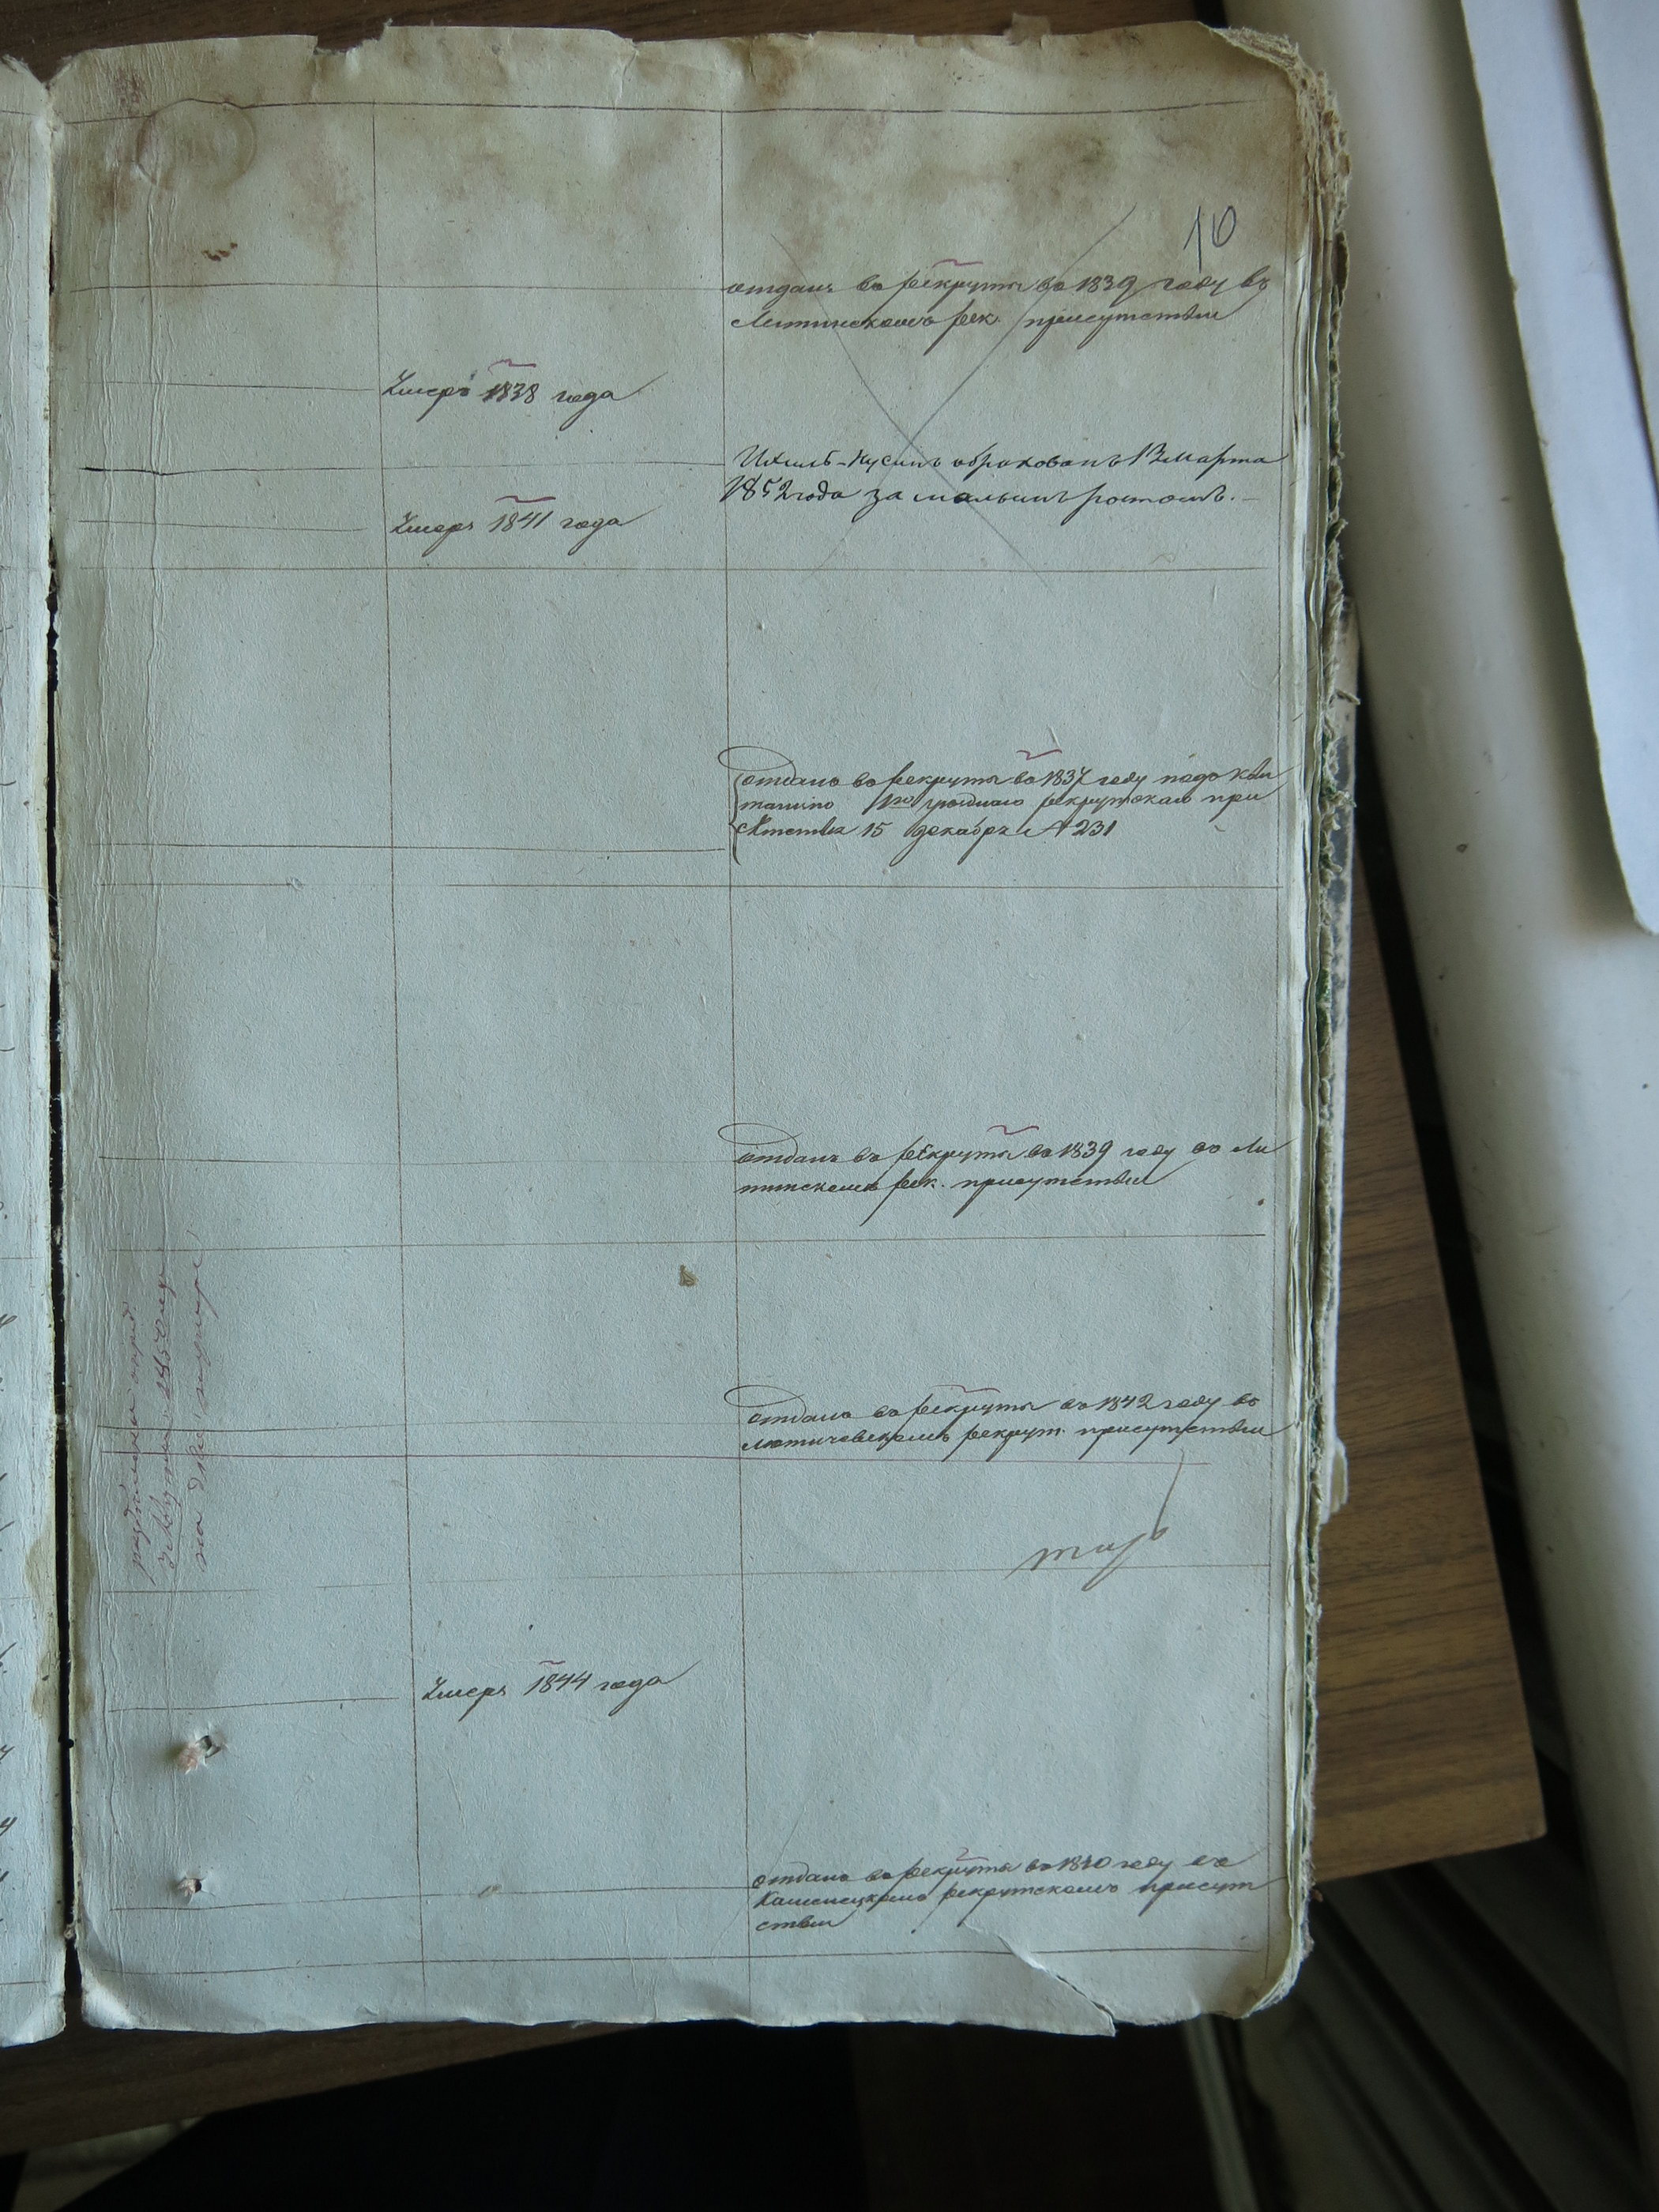 10
отданъ въ рекруты въ 1839 году въ
Литинскомъ рек. присутствіи
Умеръ 1838 года
обракованъ 13 марта
1852 года за малымъ ростомъ.
Умеръ 1841 года
отданъ въ рекруты въ 1837 году подъ кви
танцію рекрутскаго при
15 декабря № 231
отданъ въ рекруты въ 1839 году въ Ли
тинскомъ рек. присутствіи
отданъ въ рекруты въ 1842 году въ
Летичевскомъ рекрут. присутствіи
на двѣ
Умеръ 1844 года
отданъ въ рекруты въ 1840 году въ
Каменецкомъ рекрутскомъ присут
ствіи